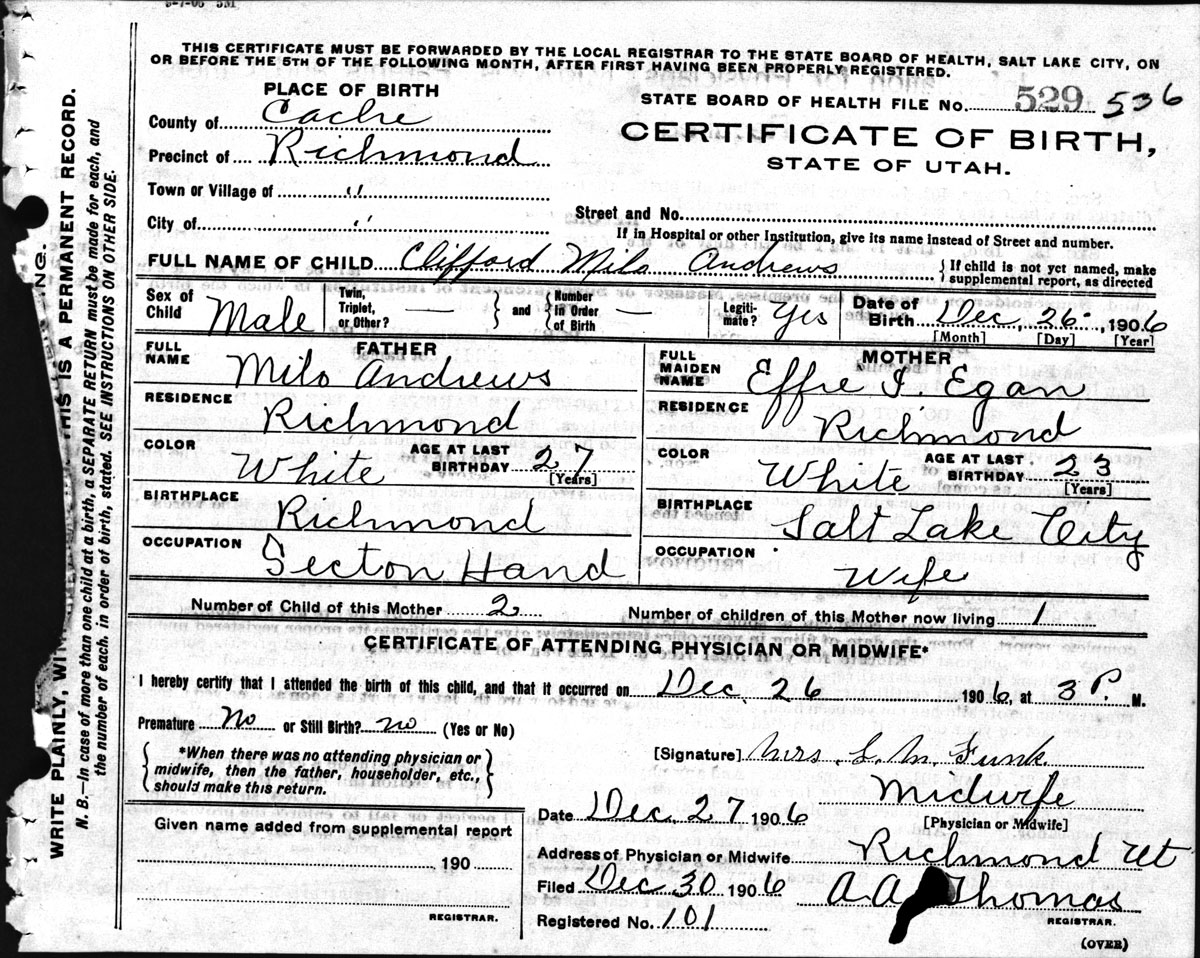 THIS CERTIFICATE MUST BE FORWARDED BY THE LOCAL REGISTRAR TO THE STATE BOARD OF HEALTH, SALT LAKE CITY, ON
OR BEFORE THE 5TH OF THE FOLLOWING MONTH, AFTER FIRST HAVING BEEN PROPERLY REGISTERED.
PLACE OF BIRTH
STATE BOARD OF HEALTH FILE NO. 529 536
County of Cache
CERTIFICATE OF BIRTH,
Precinct of Richmond
STATE OF UTAH.
Town or Village of "
City of "
Street and No.
If in Hospital or other Institution, give its name instead of Street and number.
FULL NAME OF CHILD Clifford Milo Andrews {If child is not yet named, make
supplemental report, as directed
Sex of Child Male Twin, Triplet, or Other? — } and { Number in Order of Birth — Legiti-mate? Yes Date of Birth Dec, 26, 1906
[Month] [Day] [Year]
FATHER
FULL NAME Milo Andrews
RESIDENCE Richmond
COLOR White AGE AT LAST BIRTHDAY 27
[Years]
BIRTHPLACE Richmond
OCCUPATION Secton Hand
MOTHER
FULL MAIDEN NAME Effie I. Egan
RESIDENCE Richmond
COLOR White AGE AT LAST BIRTHDAY 23
[Years]
BIRTHPLACE Salt Lake City
OCCUPATION Wife
Number of Child of this Mother 2 Number of children of this Mother now living 1
CERTIFICATE OF ATTENDING PHYSICIAN OR MIDWIFE*
I hereby certify that I attended the birth of this child, and that it occurred on Dec. 26 1906, at 3 P. M.
Premature No or Still Birth? no (Yes or No)
{*When there was no attending physician or
midwife, then the father, householder, etc.,
should make this return.}
[Signature] Mrs L. M. Funk
Midwife
[Physician or Midwife]
Date Dec. 27 1906
Address of Physician or Midwife Richmond Ut
Filed Dec 30 1906 A.A. Thomas
REGISTRAR.
Registered No. 101
(OVER)
Given name added from supplemental report
190
REGISTRAR.
WRITE PLAINLY, THIS IS A PERMANENT RECORD.
N. B.—In case of more than one child at a birth, a SEPARATE RETURN must be made for each, and
the number of each, in order of birth, stated. SEE INSTRUCTIONS ON OTHER SIDE.